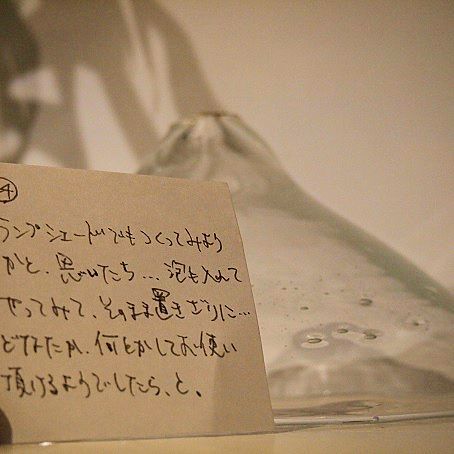 ④
ランプシェードでもつくってみよう
かと、思いたち…泡も入れて
やってみて、そのまま置きざりに…
どなたか、何とかしてお使い
頂けるようでしたら、と。